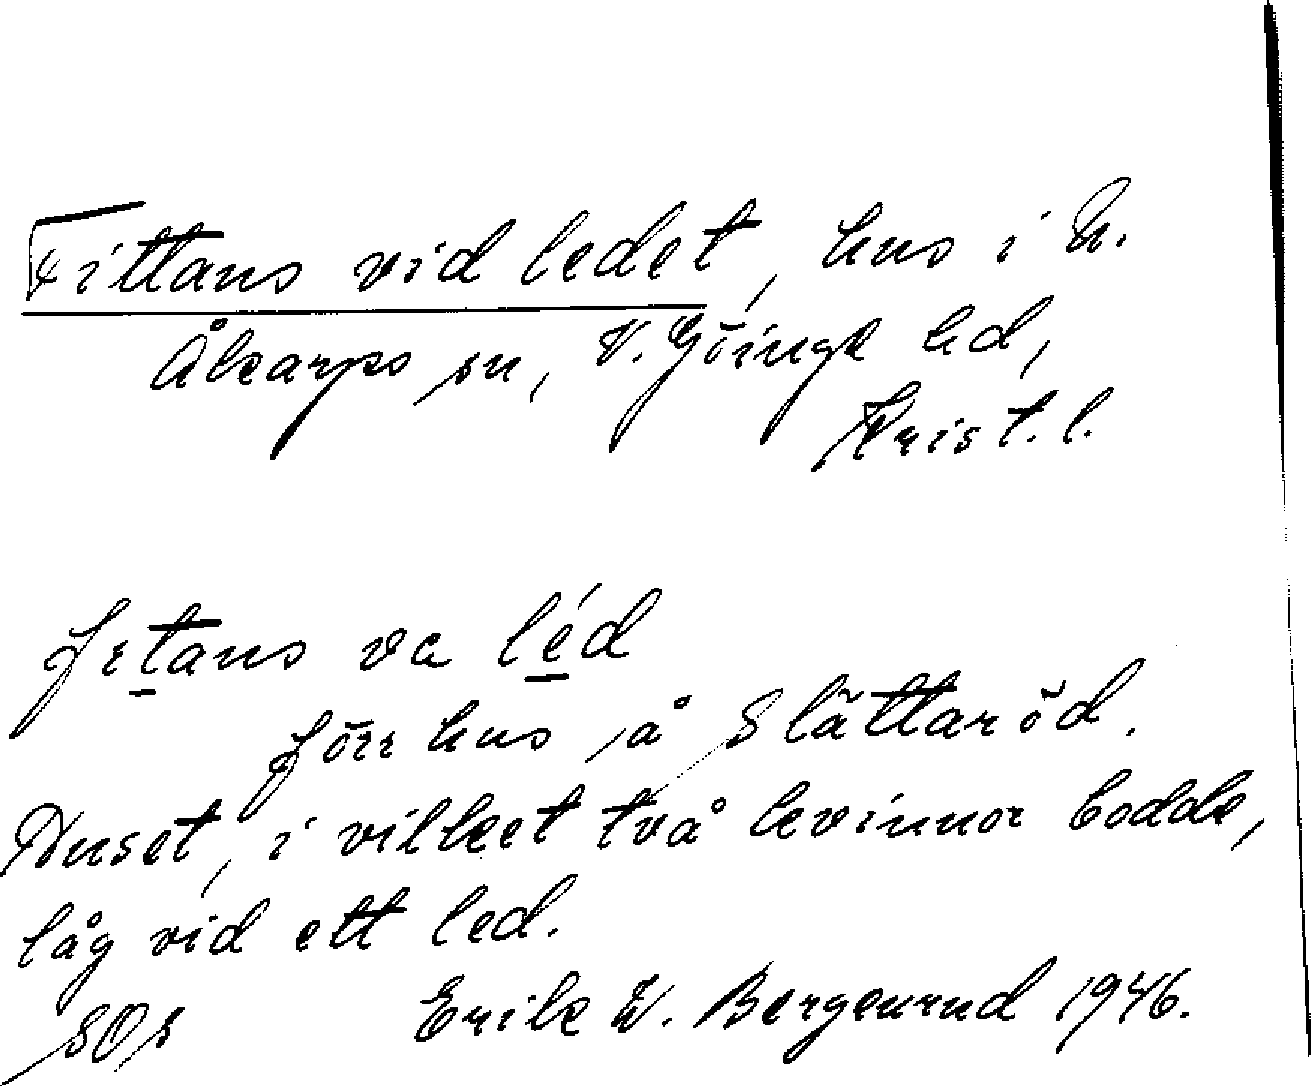 Fittans vid ledet, hus i N.
Åkarps sn, V. Göinge hd,
Krist. l.
fetans va léd
förr hus på Slättaröd.
Huset, i vilket två kvinnor bodde,
låg vid ett led.
SOs Erik W. Bergenrud 1946.